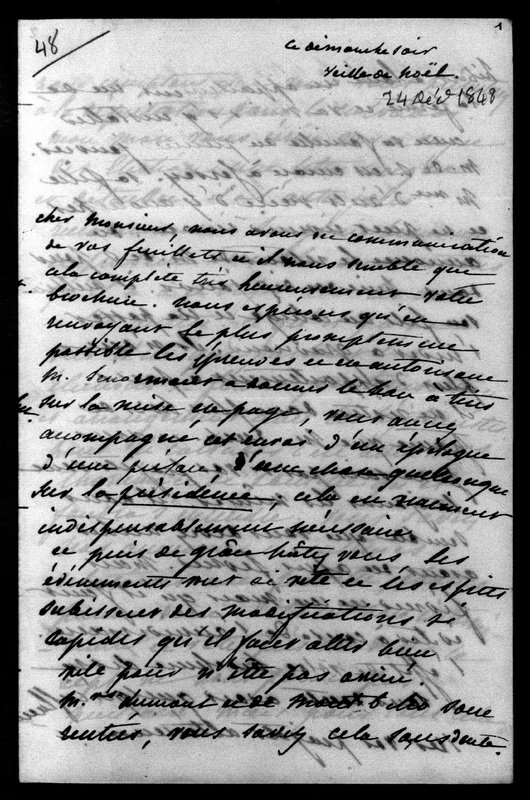 48
1
Ce dimanche soir
veille de Noël.
24 Déc 1848
cher Monsieur, nous avons eu communication
de vos feuillets et il nous semble que
cela complète très heureusement votre
brochure. nous espérons qu'en
renvoyant le plus promptement
possible les épreuves et en autorisant
M. à donner le bon à tirer
sur la mise en page, vous aurez
acompagné cet envoi d'un épilogue
d'une préface d'une chose quelconque
sur la présidence, cela est vraiment
indispensablement nécessaire
et puis de grâce hâtez vous les
événements vont si vite et les esprits
subissent des modifications si
rapides qu'il faut aller bien
vite pour n'être pas arriéré.
M.rs Dumont et de sont
rentrés, vous savez cela sans doute.